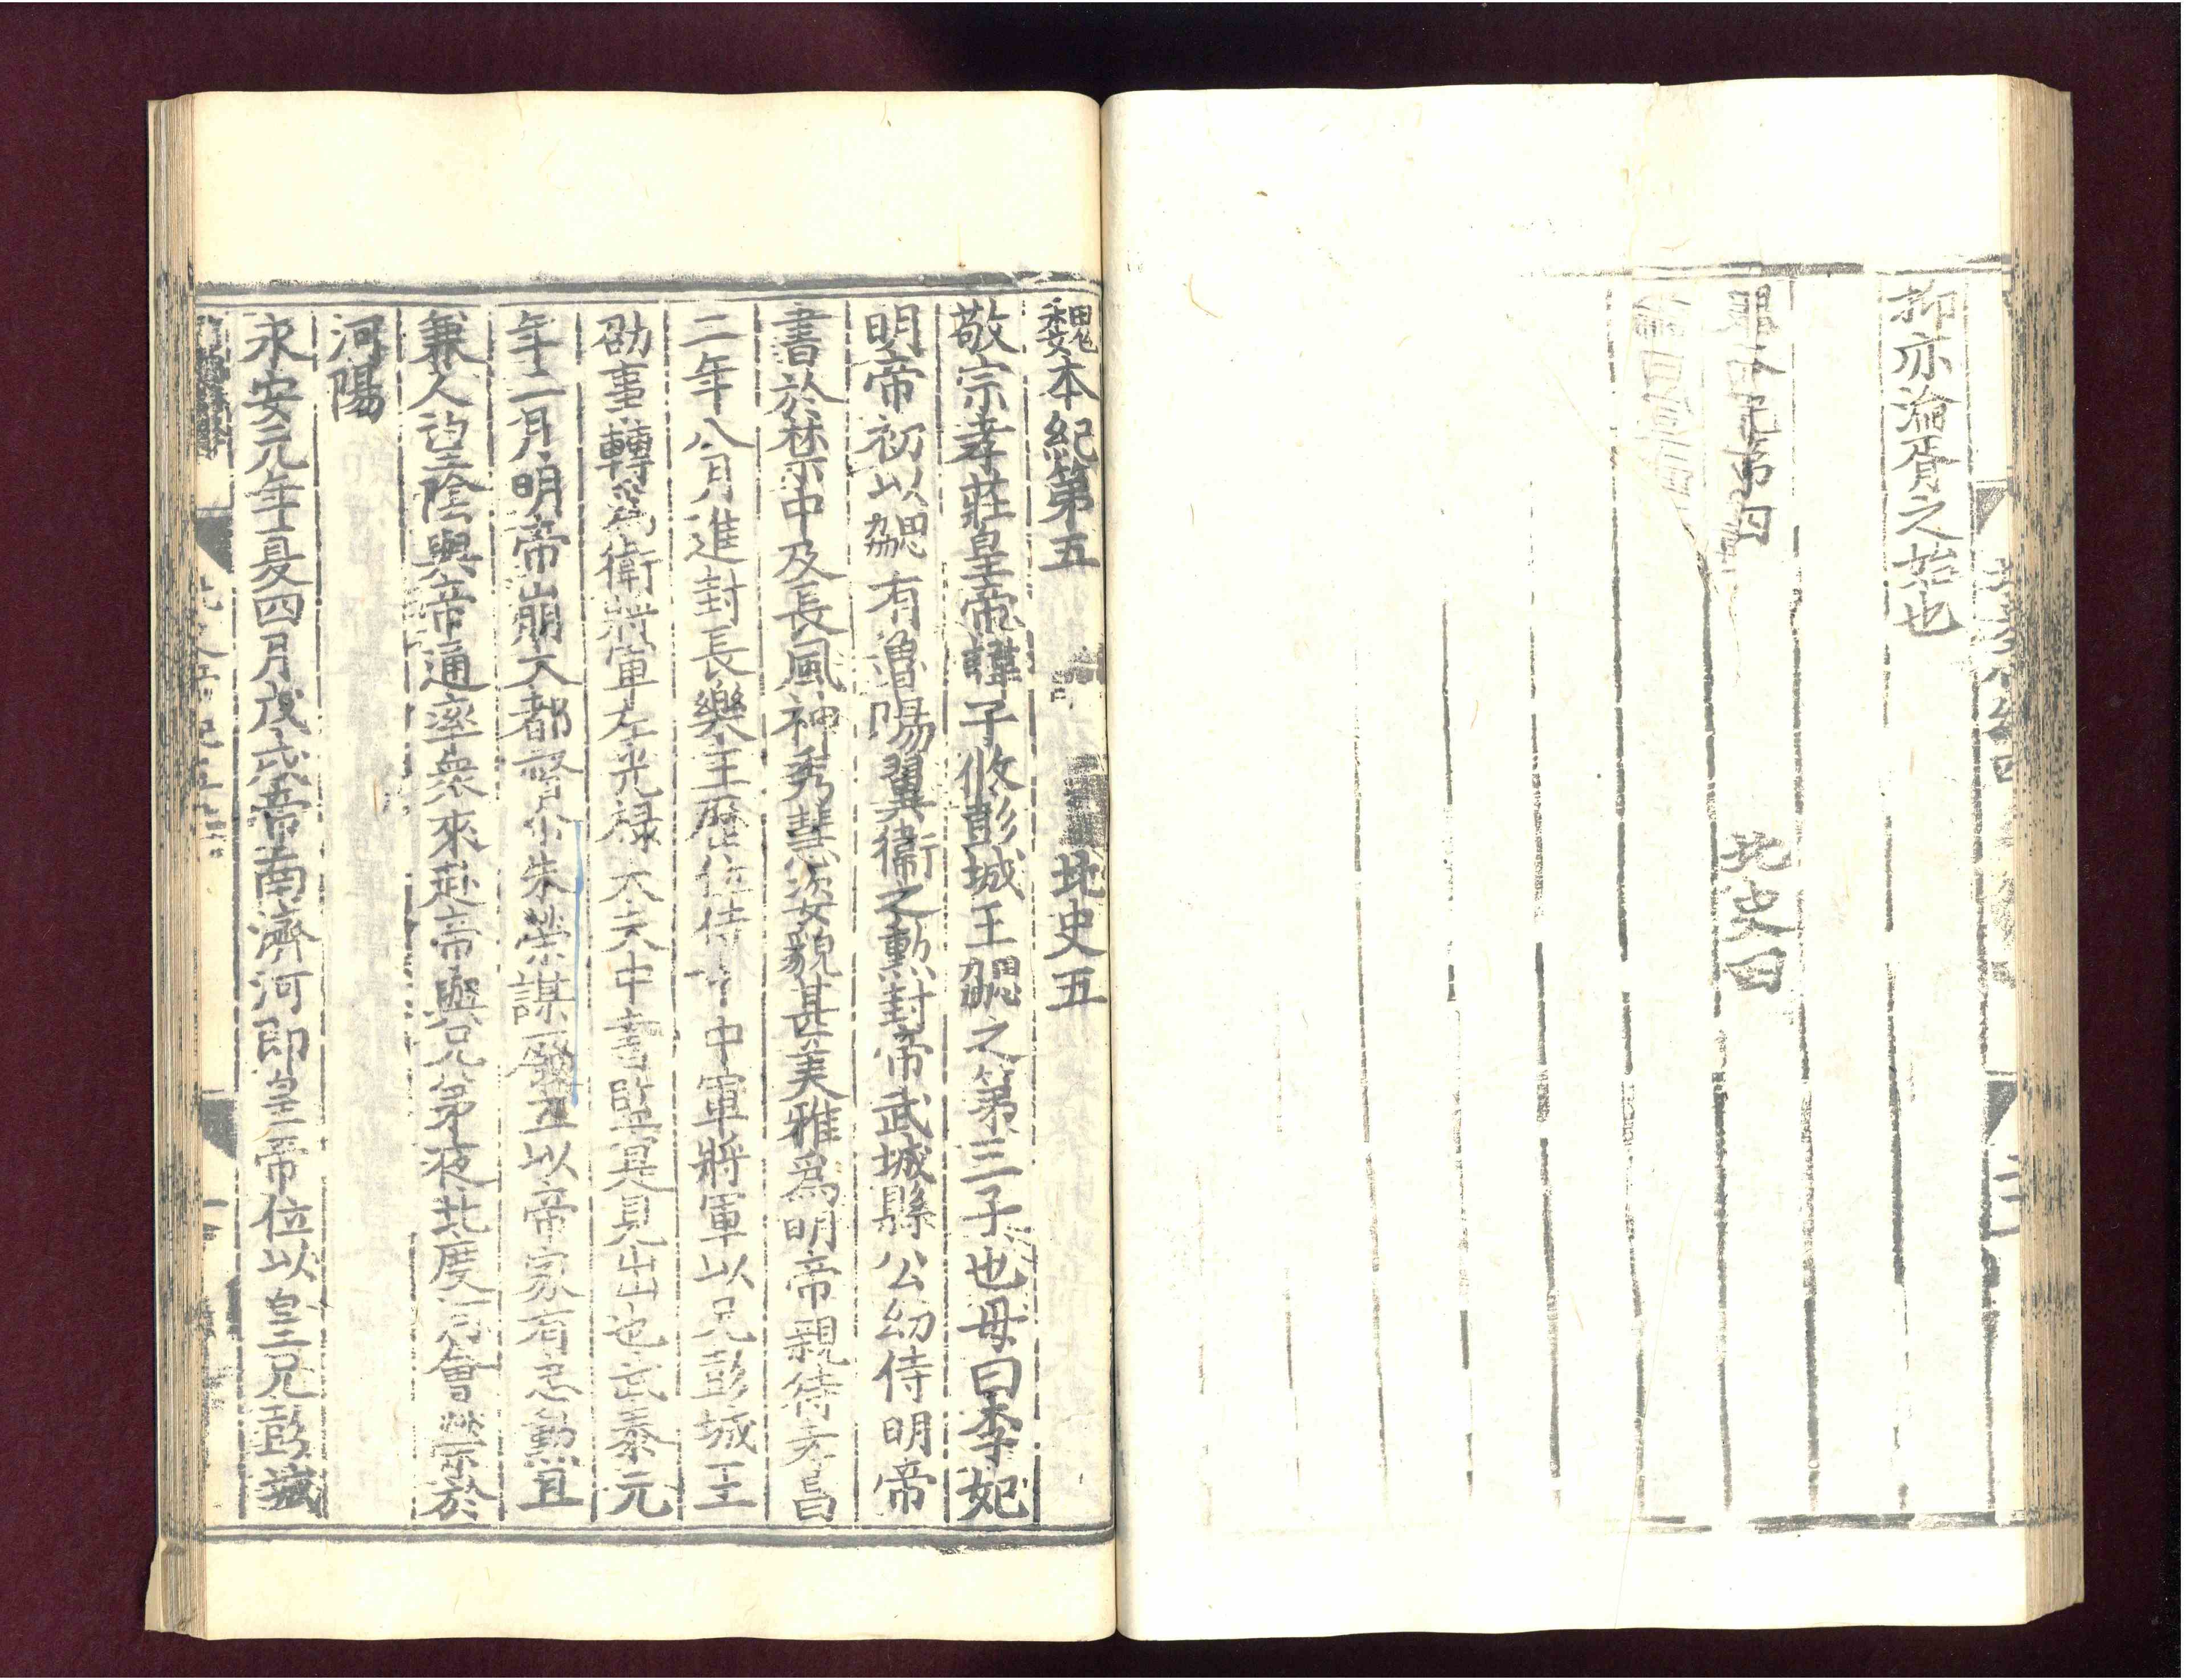 抑亦淪胥之始也
第四
北史四
魏本紀第五
北史五
敬宗孝莊皇帝諱子攸彭城王勰之第三子也母曰李妃
明帝初以勰有魯陽翼衛之勲封帝武城縣公幼侍明帝
書於禁中及長風神秀慧姿貌甚美雅爲明帝親待孝昌
二年八月進封長樂王歷位侍中中軍將軍以兄彭城王
劭事轉爲衛將軍左光禄大夫中書監實見出也武泰元
年二月明帝崩大都督尒朱榮謀廢立以帝家有忠勲且
兼人望陰與帝通率衆來赴帝與兄弟夜北度河會榮於
河陽
永安元年夏四月戊戌帝南濟河即皇帝位以皇兄彭城